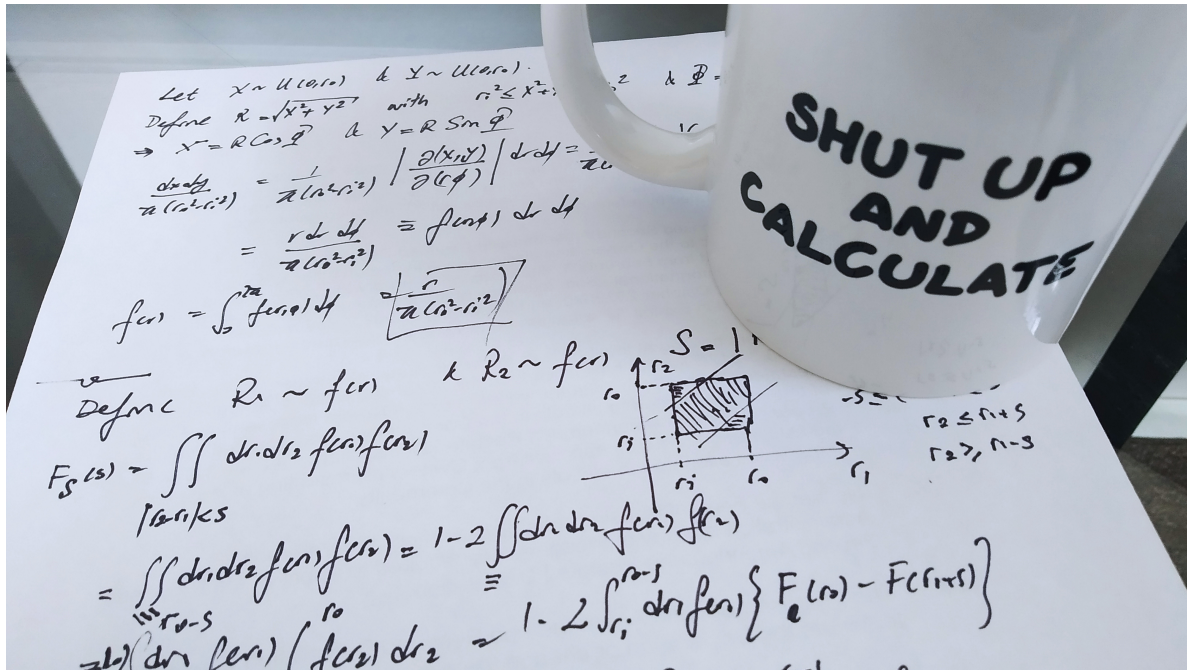 Let X ~ U(0,r₀) & Y ~ U(0,r₀).
Define R = √(X²+Y²) with rᵢ² ≤ X²+ ² & Φ =
⇒ X = R Cos Φ & Y = R Sin Φ
dxdy/π(r₀²-rᵢ²) = 1/π(r₀²-rᵢ²) |∂(x,y)/∂(r,ϕ)| dr dϕ =
= r dr dϕ/π(r₀²-rᵢ²) ≡ f(r,ϕ) dr dϕ
f(r) = ∫₀^2π f(r,ϕ) dϕ = r/π(r₀²-rᵢ²)
Define R₁ ~ f(r) & R₂ ~ f(r)
S = |
r₂
r₀
rᵢ
rᵢ r₀ r₁
-S ≤
r₂ ≤ r₁+S
r₂ ≥ r₁-S
F_S(s) = ∬ dr₁dr₂ f(r₁) f(r₂)
|r₂-r₁|<S
= ∬ dr₁dr₂ f(r₁) f(r₂) = 1-2 ∬ dr₁ dr₂ f(r₁) f(r₂)
r₀-S r₀
∫ dr₁ f(r₁) ∫ f(r₂) dr₂ = 1-2 ∫rᵢ^r₀-S dr₁ f(r₁) {F(r₀) - F(r₁+S)}
SHUT UP
AND
CALCULATE